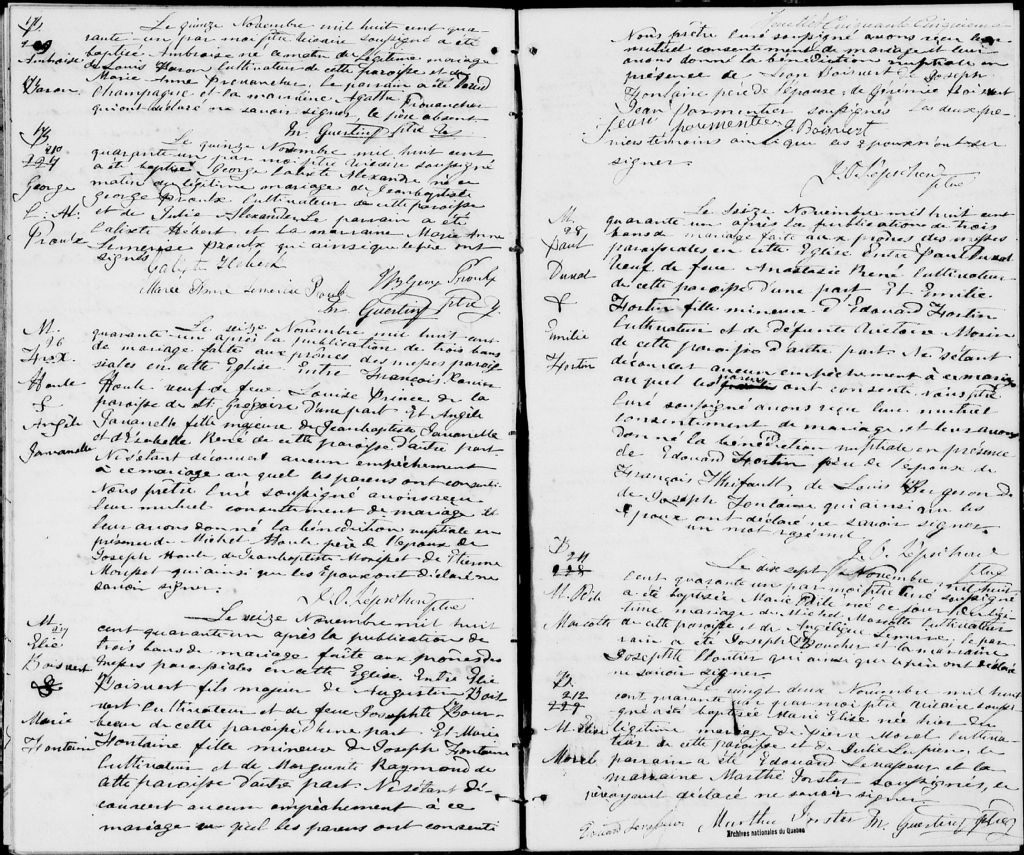 B.
209
Ambroise
Baron
Le quinze Novembre mil huit cent qua-
rante-un par moi ptre Vicaire soussigné a été
baptisé Ambroise né ce matin du légitime mariage
de Louis Baron Cultivateur de cette paroisse et de
Marie Anne Provancher. Le parrain a été David
Champagne et la marraine Agathe Provancher
qui ont déclaré ne savoir signer, le père absent.
M. Guertin Ptre Vic
B.
210
George
C. Al.
Proulx
Le quinze Novembre mil huit cent
quarante-un par moi ptre Vicaire soussigné
a été baptisé George Calixte Alexandre né ce
matin du légitime mariage de Jeanbaptiste
George Proulx Cultivateur de cette paroisse
et de Julie Alexander. Le parrain a été
Calixte Hébert et la marraine Marie Anne
Lemerise Proulx qui ainsi que le père ont
signés
Calixte Hebert
Marie Anne Lemerise Proulx
JB George Proulx
M. Guertin Ptre V.
M.
26
Frox
Houle
&
Angèle
Janvanelle
Le seize Novembre mil huit cent
quarante-un après la publication de trois bans
de mariage faite aux prônes des messes parois-
siales en cette Eglise. Entre François Xavier
Houle veuf de feue Louise Prince de la
paroisse de St. Grégoire d'une part. Et Angèle
fille majeure de Jeanbaptiste
et d'Isabelle René de cette paroisse d'autre part
Ne s'étant découvert aucun empêchement
à ce mariage au quel les parens ont consenti
Nous prêtre Curé soussigné avons reçu
leur mutuel consentement de mariage et
leur avons donné la bénédiction nuptiale en
présence de Michel Houle père de l'époux de
Joseph Houle, de Jeanbaptiste de Etienne
qui ainsi que les Epoux ont déclaré ne
savoir signer.
ptre
M.
27
Elie
Boisvert
&
Marie
Fontaine
Le seize Novembre mil huit
cent quarante un après la publication de
trois bans de mariage faite aux prônes des
messes paroissiales en cette Eglise. Entre Elie
Boisvert fils majeur de Augustin Bois-
vert Cultivateur et de feue Josephte Bour-
beau de cette paroisse d'une part. Et Marie
Fontaine fille mineure de Joseph Fontaine
Cultivateur et de Marguerite Raymond de
cette paroisse d'autre part. Ne s'étant dé-
couvert aucun empêchement à ce
mariage au quel les parens ont consenti
Nous prêtre Curé soussigné avons reçu leur
mutuel consentement de mariage et leur
avons donné la bénédiction nuptiale en
présence de Boisvert de Joseph
Fontaine père de l'épouse, de Boisvert
Jean Parmentier soussignés les deux pre-
jean parmentier J. Boisvert
miers témoins ainsi que les époux n'ont su
signer.
ptre
M.
28
Paul
Duval
&
Emilie
Fortin
Le seize Novembre mil huit cent
quarante un après la publication de trois
bans de mariage faite aux prônes des messes
paroissiales en cette Eglise Entre Paul Duval
veuf de feue Anastasie René Cultivateur
de cette paroisse d'une part. Et Emilie
Fortin fille mineure d'Edouard Fortin
Cultivateur et de Défunte Victoire Morin
de cette paroisse d'autre part. Ne s'étant
découvert aucun empêchement à ce mariage
au quel les parens ont consenti nous ptre
Curé soussigné avons reçu leur mutuel
consentement de mariage et leur avons
donné la bénédiction nuptiale en présence
de Edouard Fortin père de l'épouse de
François Thifault, de Louis Bergeron de
de Joseph Fontaine qui ainsi que les
Epoux ont déclaré ne savoir signer
un mot rayé nul
ptre
B
211
M. Odile
Marcotte
Le dix sept Novembre mil huit
cent quarante un par moi ptre Curé soussigné
a été baptisée Marie Odile née ce jour du légi-
time mariage de Marcotte Cultivateur
de cette paroisse et de Angélique Lemire, le par-
rain a été Joseph Boucher et la marraine
Josephte Cloutier qui ainsi que le père ont déclaré
ne savoir signer.
B
212
M. Elise
Morel
Le vingt deux Novembre mil huit
cent quarante un par moi ptre Vicaire soussi-
gné a été baptisée Marie Elise née hier du
légitime mariage de Pierre Morel Cultiva-
teur de cette paroisse et de Julie le
parrain a été Edouard et la
marraine Marthe Forster soussignés, le
père ayant déclaré ne savoir signer
Marthe Forster M. Guertin Ptre
Archives nationales du Québec